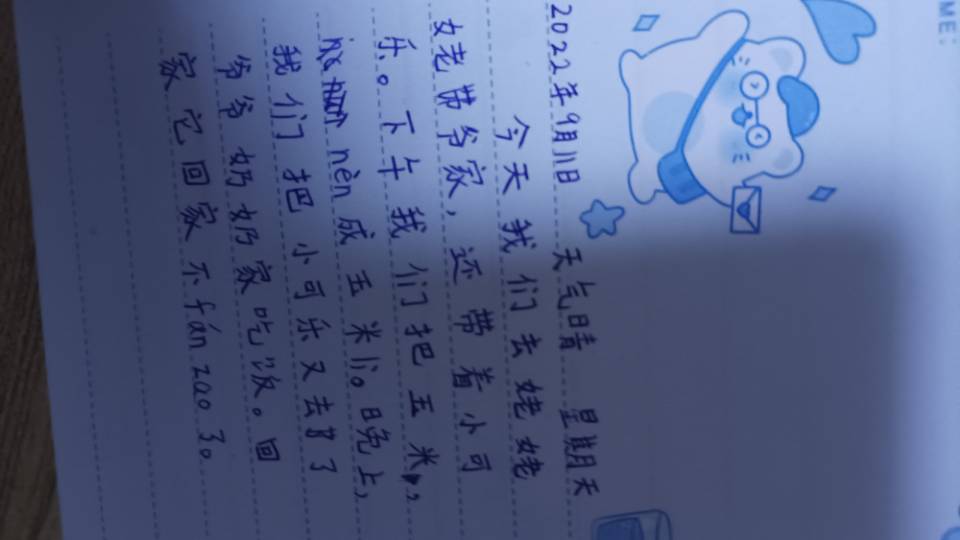 ME:
2022年9月11日 天气晴 星期天
今天我们去姥姥
姥带爷家，还带着小可
乐。下午我们把玉米，
nèn成玉米li。晚上，
我们把小可乐又去了
爷爷奶奶家吃饭。回
家它回家不fán zao了。